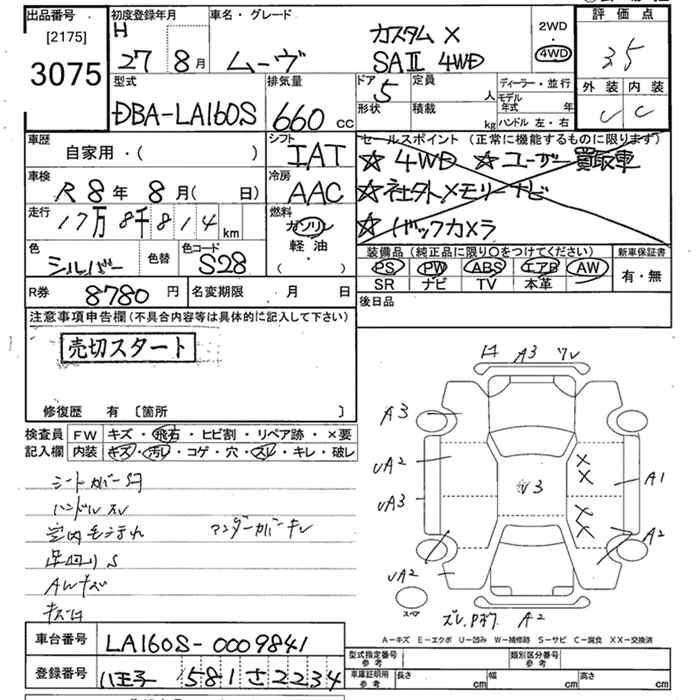 出品番号
[2175]
3075
初度登録年月
H
27 8月
車名・グレード
ムーヴ
カスタム X
SAⅡ 4WD
2WD
・
4WD
評価点
3.5
外装 内装
C C
型式
DBA-LA160S
排気量
660 cc
ドア 5
定員 人
形状
積載 kg
ディーラー・並行
モデル年式 年
ハンドル 左・右
車歴
自家用・( )
シフト
IAT
車検
R 8年 8月( 日)
冷房
AAC
走行
17万8千814 km
燃料
ガソリン
軽油
( ・ )
色
シルバー
色替
色コード
S28
セールスポイント (正常に機能するものに限ります)
☆ 4WD ☆ ユーザー買取車
☆ 社外メモリーナビ
☆ バックカメラ
装備品(純正品に限り〇をつけてください)
PS PW ABS エアB AW
SR ナビ TV 本革
新車保証書
有・無
R券 8780 円
名変期限 月 日
後日品
注意事項申告欄(不具合内容等は具体的に記入して下さい)
売切スタート
修復歴 有 〔箇所 〕
検査員記入欄
FW キズ・飛石・ヒビ割・リペア跡・×要
内装 キズ・汚レ・コゲ・穴・スレ・キレ・破レ
シートカバーS月
ハンドルスレ
アンダーカバーキレ
足回りS
AWキズ
A3
A3
UA2
UA3
UA2
A1
A2
A2
スペア
A=キズ E=エクボ U=凹み W=補修跡 S=サビ C=腐食 XX=交換済
車台番号
LA160S-0009841
登録番号
八王子 581 さ 2234
型式指定番号
参考
類別区分番号
参考
車庫証明用
参考
長さ cm
幅 cm
高さ cm